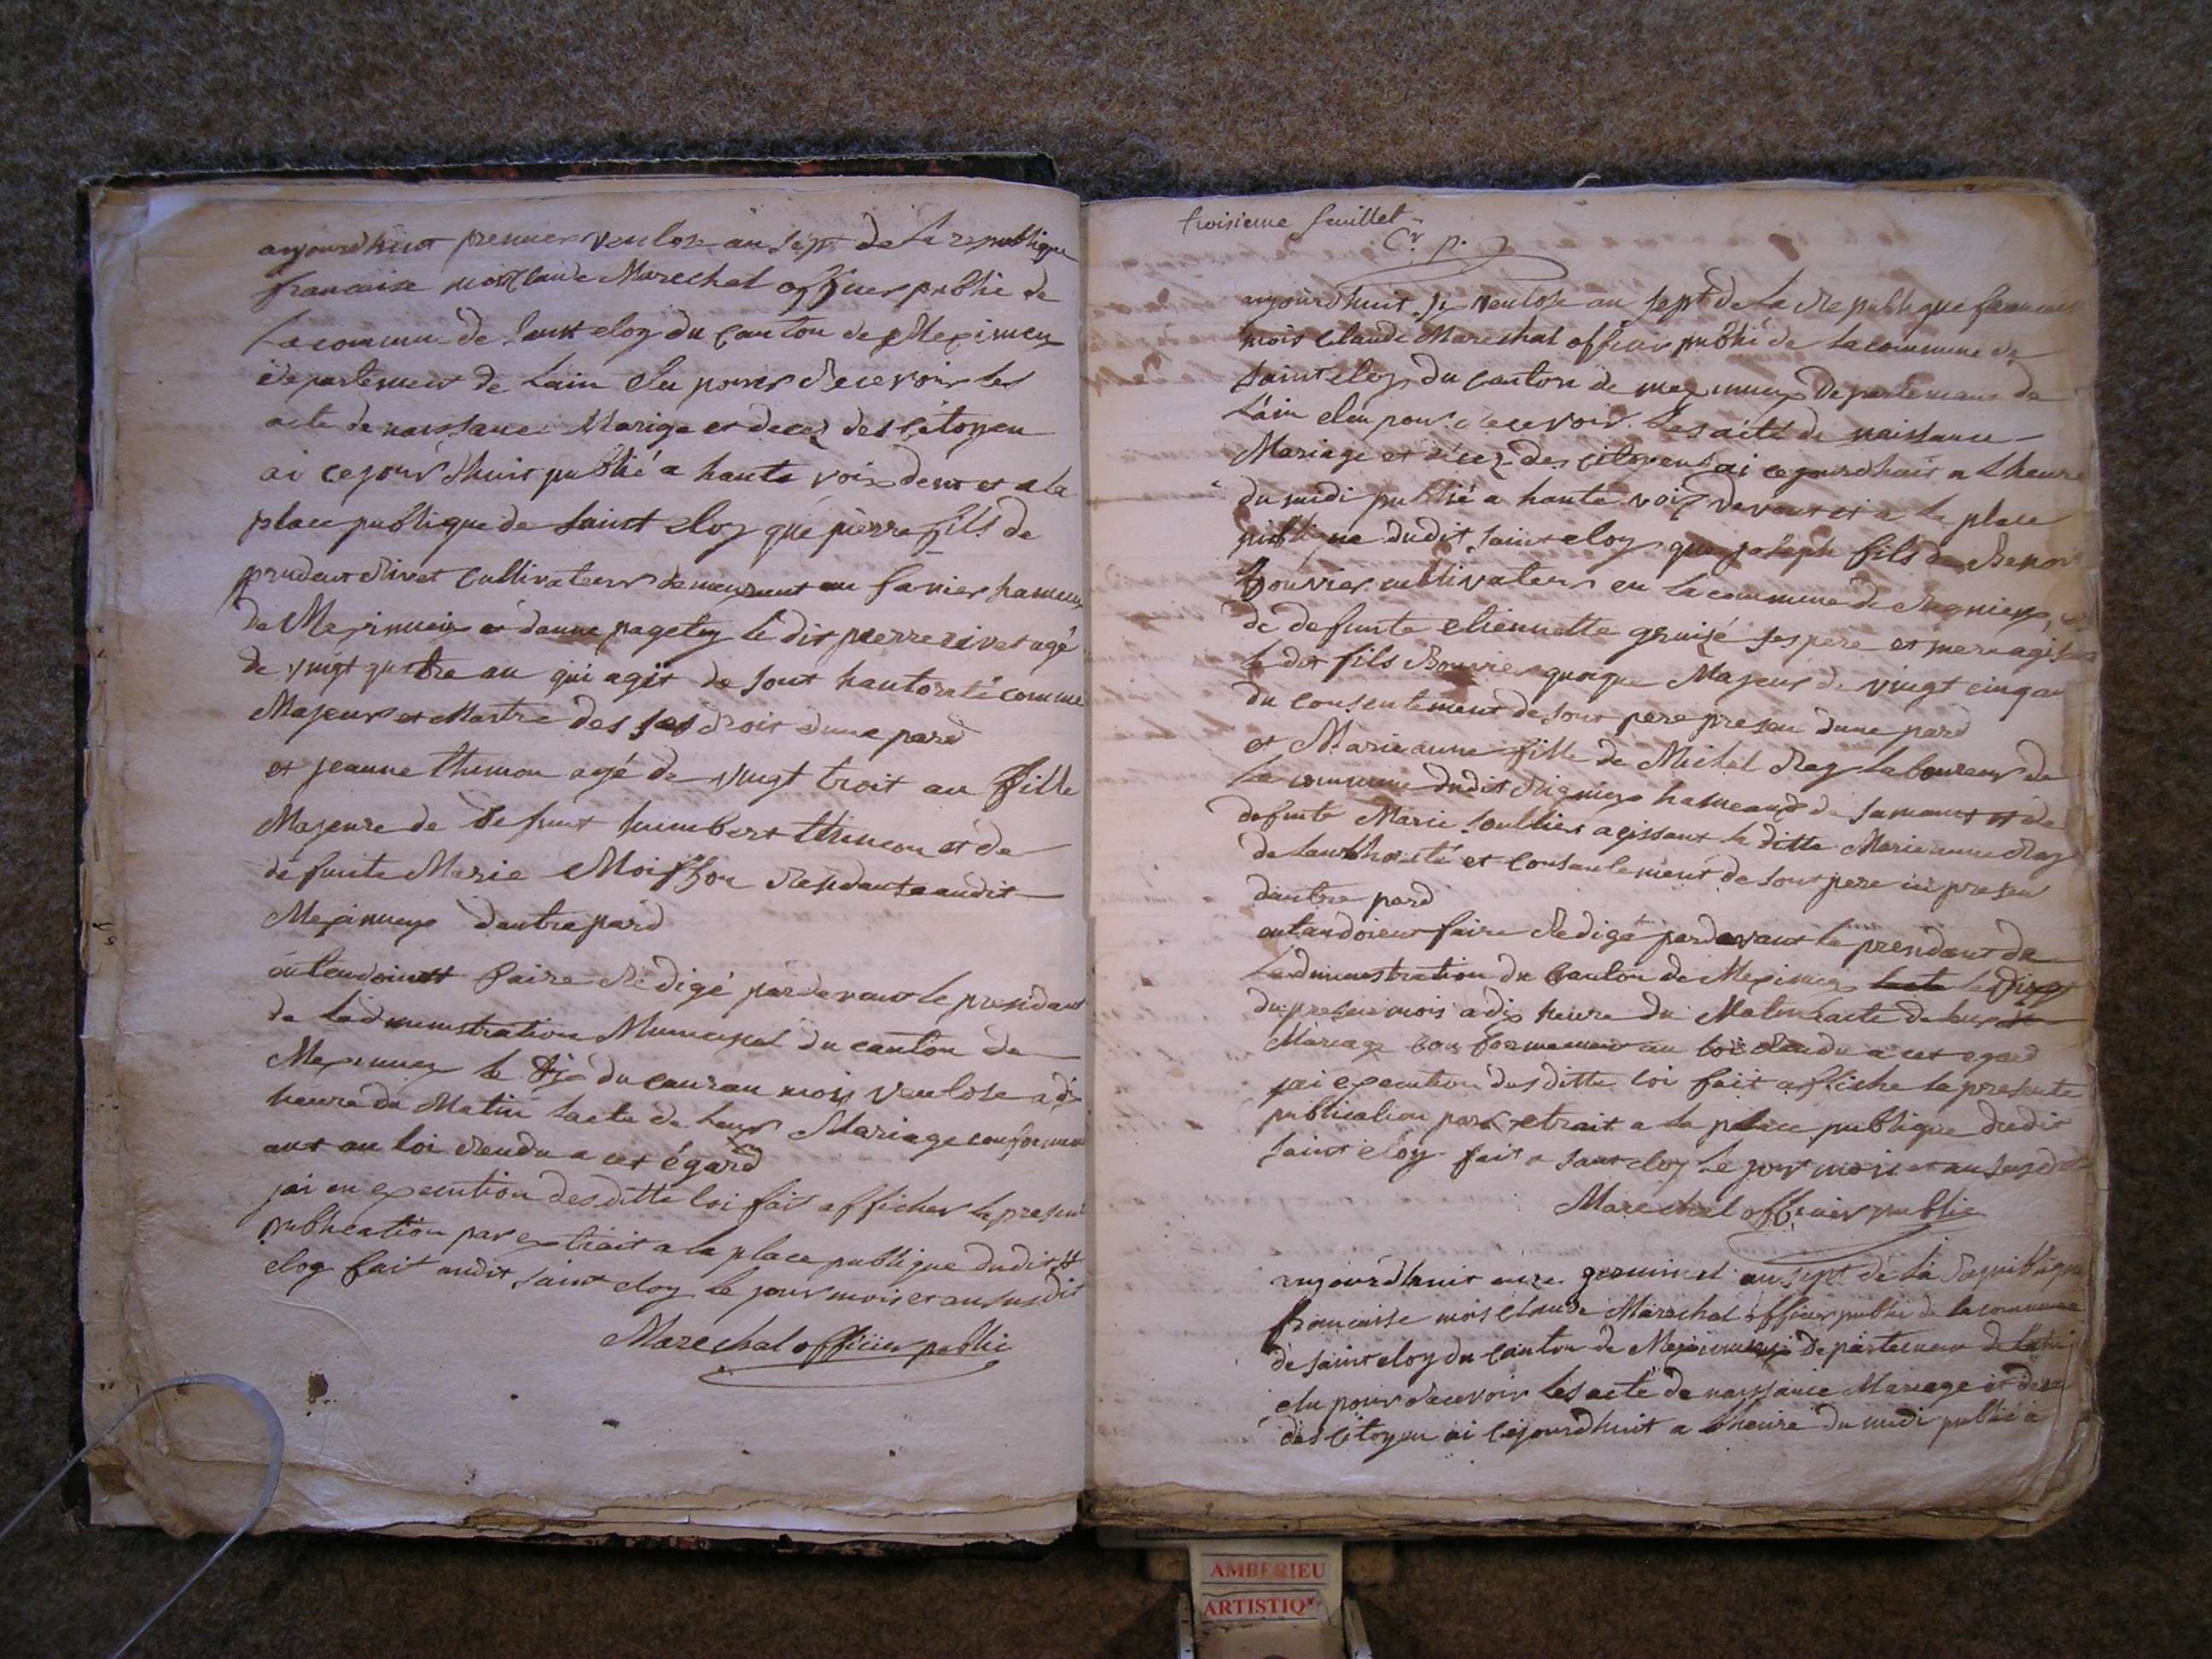 aujourdhuit premier ventose an sept de la republique
francaise mois Claude Marechal officier public de
la commune de saint eloy du canton de Meximieu
departement de Lain elu pour recevoir les
acte de naissance Marige et decez des Citoyen
ai cejourdhuit publié a haute voix devt et a la
place publique de saint eloy que pierre fils de
prudent Rivet Cultivateur demeurant au hameux
de Meximieux et danne pagetey le dit pierre rivet agé
de vingt quatre an qui agit de sont hautoraté comme
Majeur et Maitre des ses droit dune pard
et jeanne thimon agé de vingt troit an fille
Majeure de defunt humbert thimon et de
defunte Marie Moiffon Residante audit
Meximieux dautre pard
entendoient faire Redigé pardevant le presidant
de Ladministration Municipal du canton de
Meximieu le dix du couran mois ventose a dix
heure du Matin lacte de leur Mariage conformem
ant au loi Rendu a cet égard
jai en execution desditte loi fait afficher la presente
publication par extrait a la place publique dudit St
eloy fait audit saint eloy le jour mois et an susdit
Marechal officier public
troisieme feuillet
C. p.
aujourdhuit six ventose an sept de la Republique francais
mois Claude Marechal officier publié de la commune de
saint eloy du canton de meximieux Departement de
Lain elu pour recevoir les acte de naissance
Mariage et décez des citoyens ai cejourdhuit a Lheure
du midi publié a haute voix devant et a la place
publique dudit saint eloy que joseph fils de Benoi
Bouvier cultivateur en la commune de Rignieux
de defunte etiennette gruizé ses pere et mere agissant
le dit fils Bouvier quoique Majeur de vingt cinq an
du consentement de sont pere presen dune pard
et Marieanne fille de Michel Rey laboureur de
la commune dudit Rignieux hameaux de samans et de
defunte Marie soullier agissant la ditte Marieanne Rey
de lauthorité et consantement de sont pere ici presen
dautre pard
entandoient faire Redigé pardevant le presidant de
Ladministration du Canton de Meximieu lacte le Dix
du presen mois a dix heure du Matin Lacte de leur
Mariage conformement au loi Rendu a cet egard
jai execution desditte loi fait affiche la presente
publication par extrait a la place publique dudit
saint eloy fait a saint eloy le jour mois et an susdit
Marechal officier public
aujourdhuit onze germinal an sept de la Republique
francaisse mois claude Marechal officier public de la commune
de saint eloy du canton de Meximieux Departement de Lain
elu pour recevoir les acte de naissance Mariage et decez
des Citoyen ai cejourdhuit a Lheure du midi publié a
AMBERIEU
ARTISTIQ